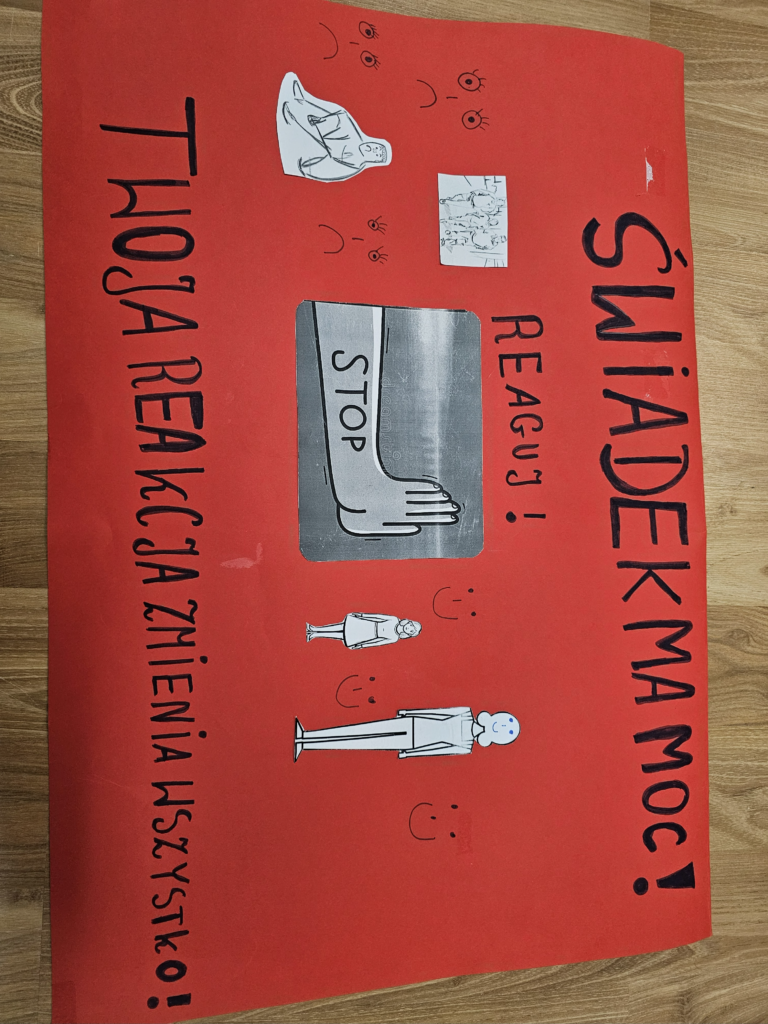 ŚWiADEK MA MOC!
REAGUJ!
STOP
TWOJA REAKCJA ZMIENiA WSZYSTKO!